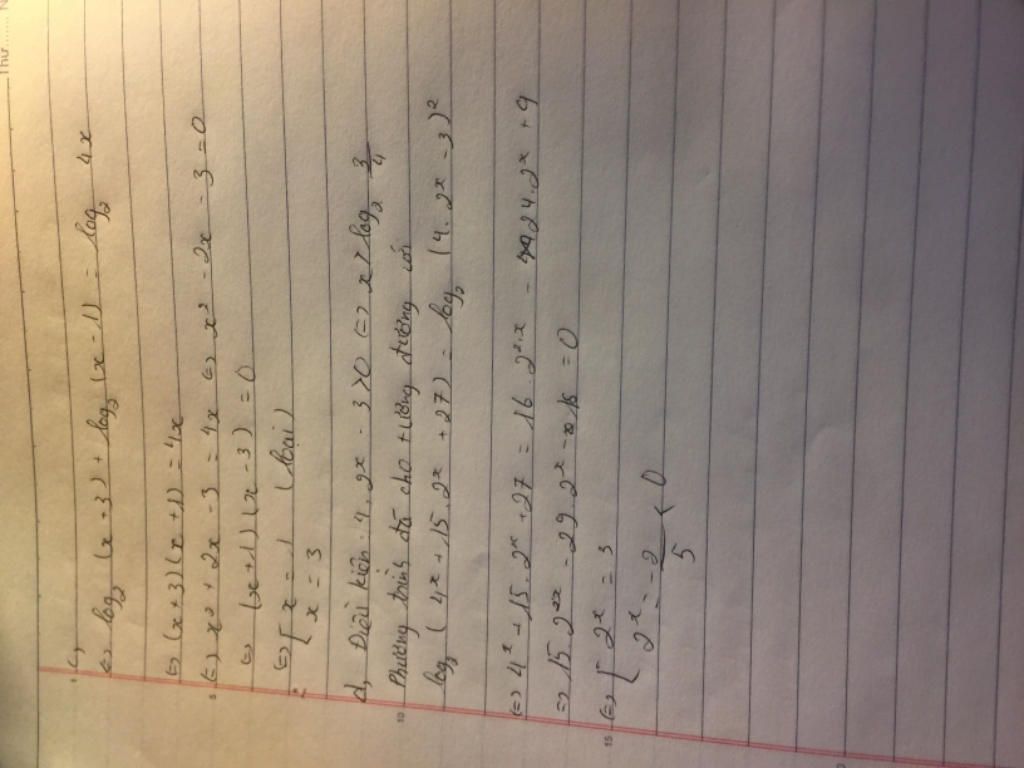 c,
(=) log₂ (x + 3) + log₂ (x - 1) = log₂ 4x
(=) (x + 3) (x + 1) = 4x
(=) x² + 2x - 3 = 4x (=) x² - 2x - 3 = 0
(=) (x + 1) (x - 3) = 0
(=) [ x = -1 (loại)
x = 3
d, Điều kiện: 4. 2ˣ - 3 > 0 (=) x > log₂ 3/4
Phương trình đã cho tương đương với
log₂ (4ˣ + 15. 2ˣ + 27) = log₂ (4. 2ˣ - 3)²
(=) 4ˣ + 15. 2ˣ + 27 = 16. 2²ˣ - 24. 2ˣ + 9
=) 15. 2²ˣ - 29. 2ˣ - 18 = 0
(=) [ 2ˣ = 3
2ˣ = -2/5 < 0